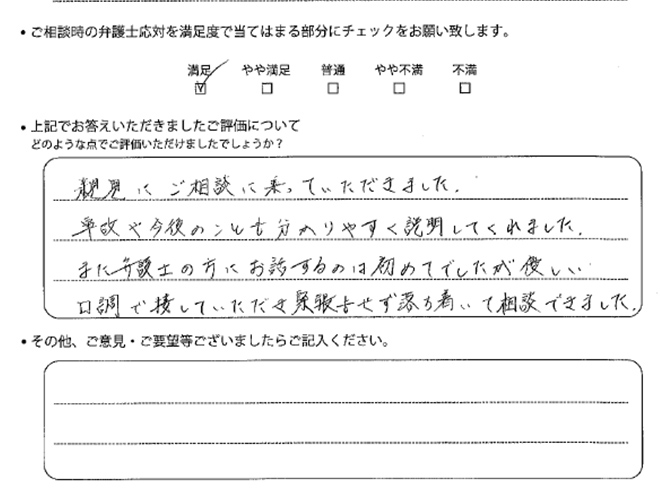 • ご相談時の弁護士応対を満足度で当てはまる部分にチェックをお願い致します。
満足 やや満足 普通 やや不満 不満
☑ ☐ ☐ ☐ ☐
• 上記でお答えいただきましたご評価について
どのような点でご評価いただけましたでしょうか？
親身にご相談に乗っていただきました.
事故や今後のことも分かりやすく説明してくれました.
また弁護士の方にお話するのは初めてでしたが優しい
口調で接していただき緊張もせず落ち着いて相談できました.
• その他、ご意見・ご要望等ございましたらご記入ください。